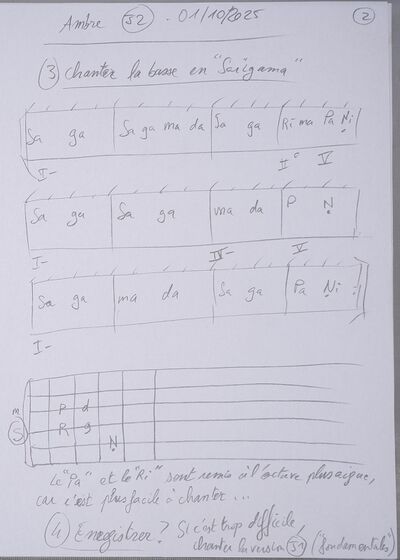 Ambre S2 - 01/10/2025
2
3 chanter la basse en "Saïlgama"
Sa ga | Sa ga ma da | Sa ga | Ri ma Pa Ni
I- II° V
Sa ga | Sa ga | ma da | P N
I- IV- V
Sa ga | ma da | Sa ga | Pa Ni
I-
m P d
S R g
N
Le "Pa" et le "Ri" sont remis à l'octave plus aigue,
car c'est plus facile à chanter...
4 Enregistrer? Si c'est trop difficile,
chanter la version S1 ("fondamentales")